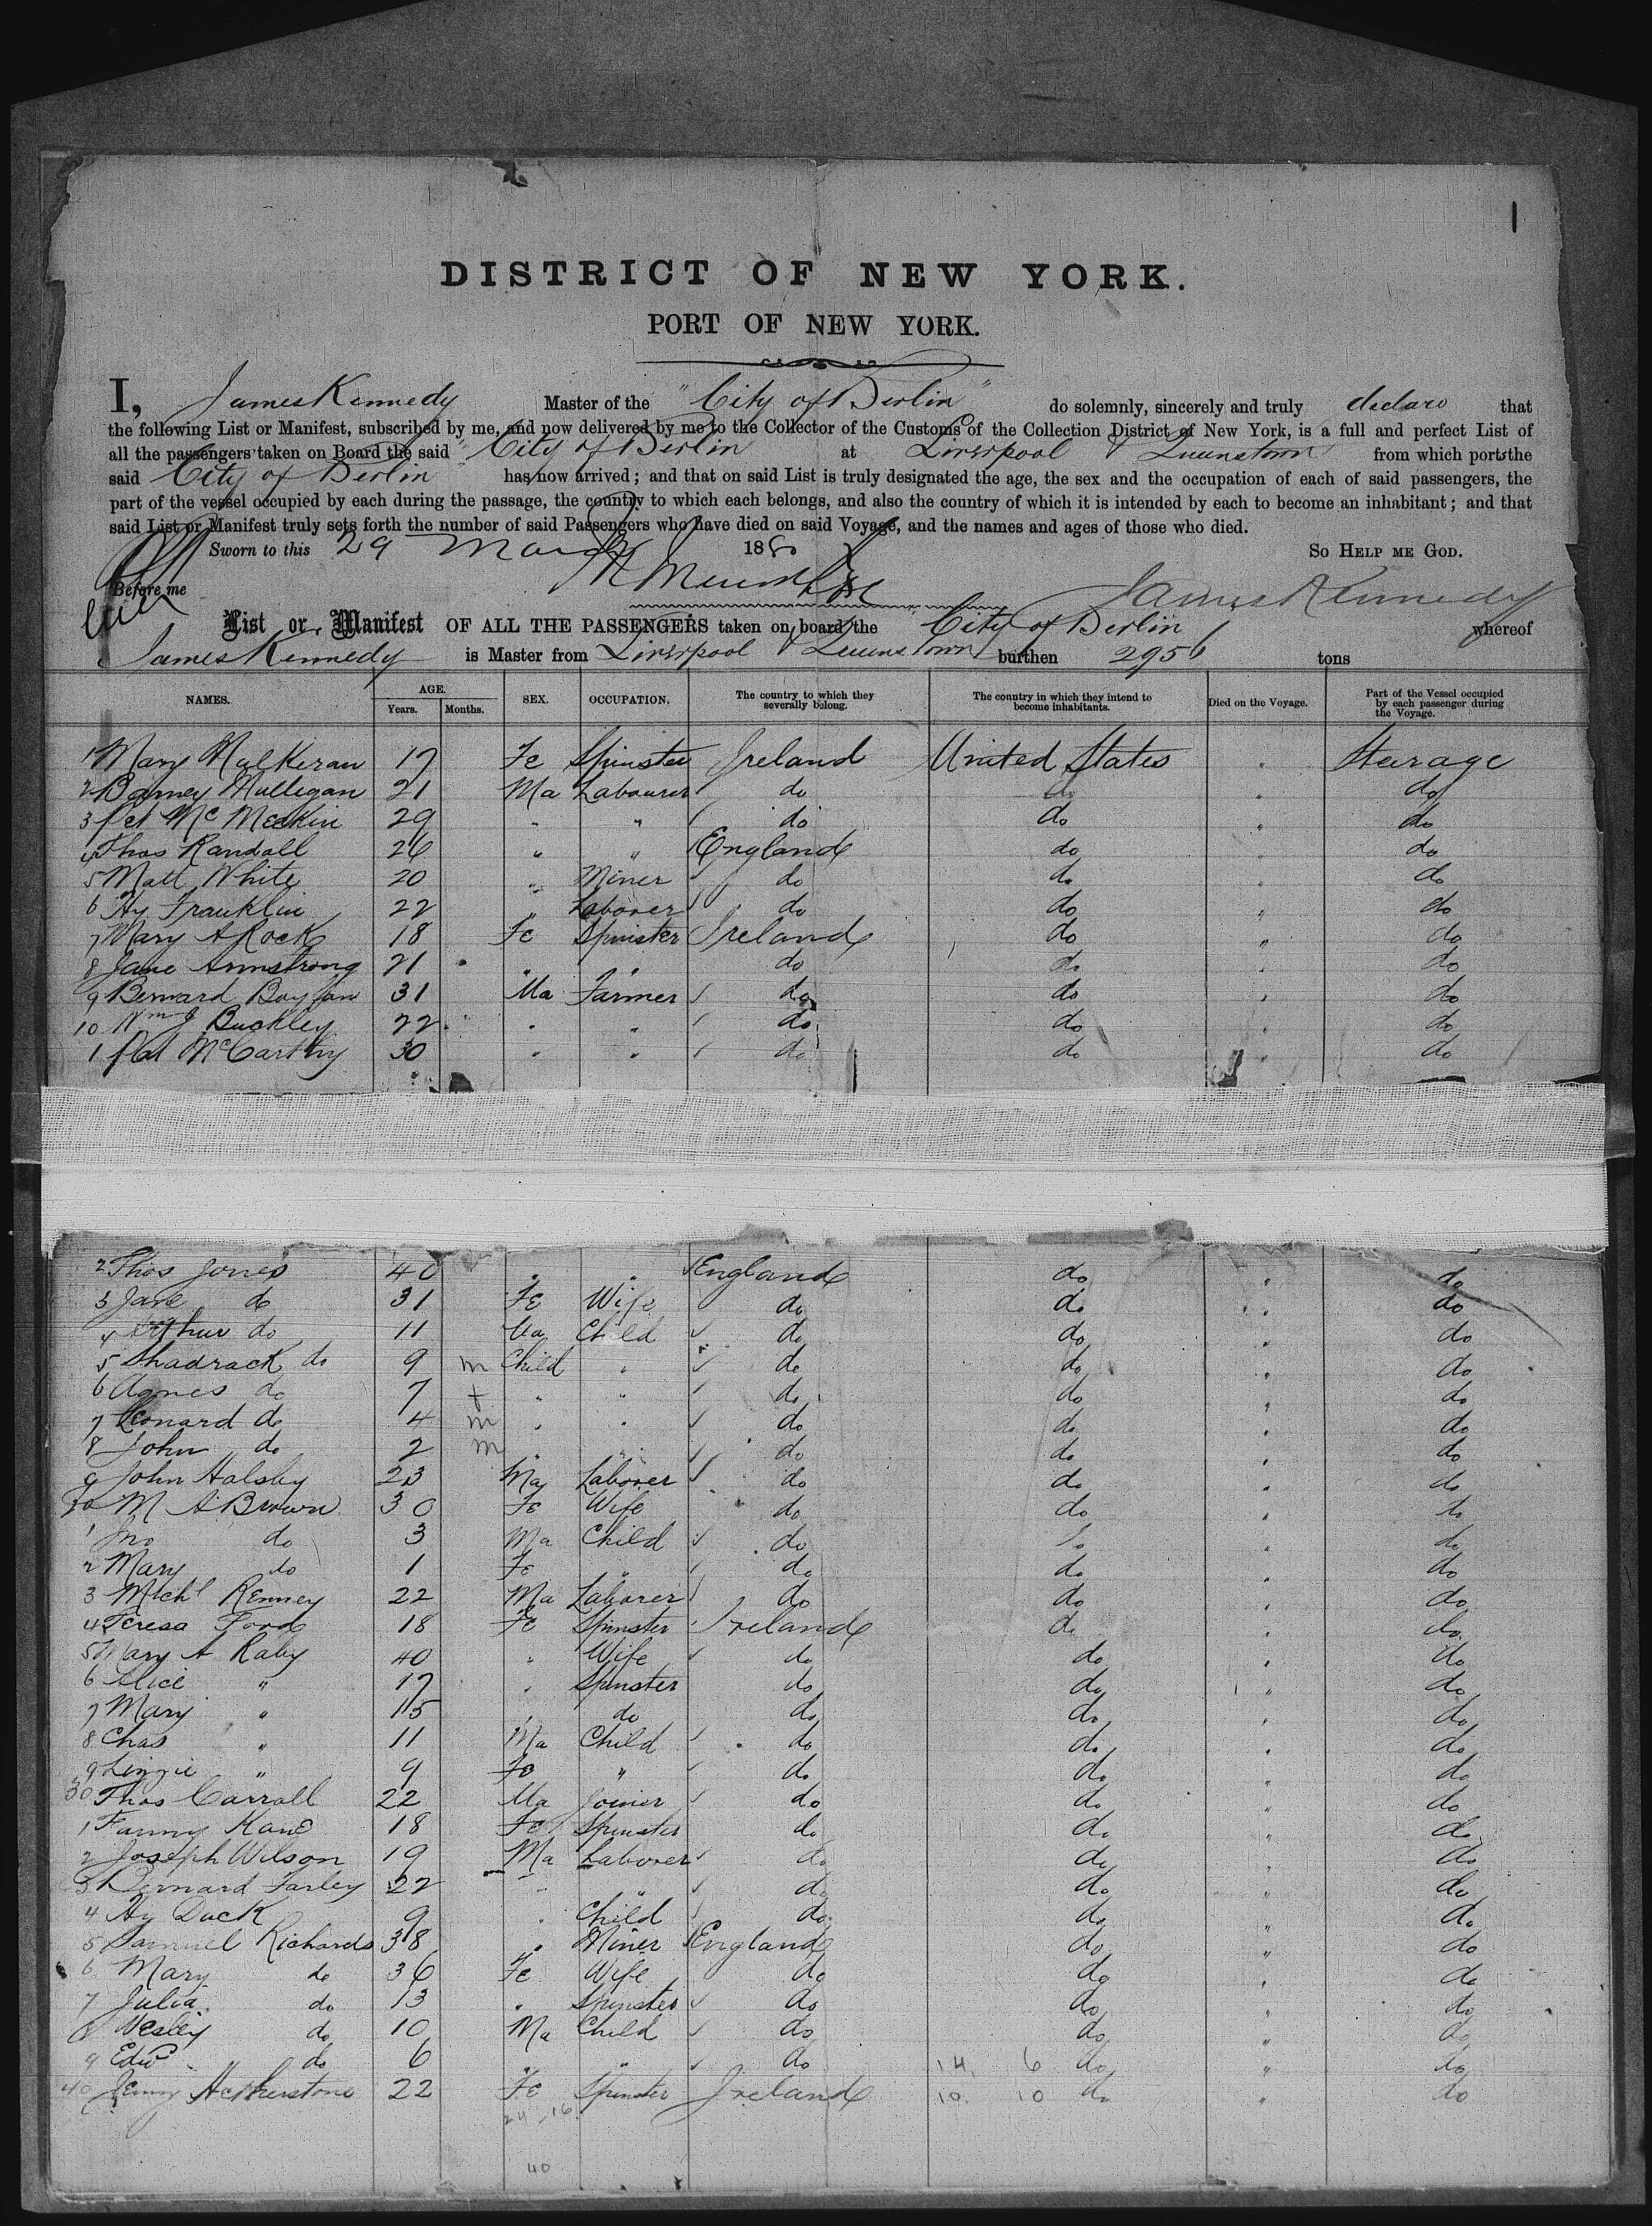 1
DISTRICT OF NEW YORK.
PORT OF NEW YORK.
I, James Kennedy Master of the "City of Berlin" do solemnly, sincerely and truly declare that
the following List or Manifest, subscribed by me, and now delivered by me to the Collector of the Customs of the Collection District of New York, is a full and perfect List of
all the passengers taken on Board the said "City of Berlin at Liverpool & Queenstown from which ports the
said City of Berlin has now arrived; and that on said List is truly designated the age, the sex and the occupation of each of said passengers, the
part of the vessel occupied by each during the passage, the country to which each belongs, and also the country of which it is intended by each to become an inhabitant; and that
said List or Manifest truly sets forth the number of said Passengers who have died on said Voyage, and the names and ages of those who died.
Sworn to this 29 March 1880 So Help me God.
Before me James Kennedy
List or Manifest OF ALL THE PASSENGERS taken on board the City of Berlin whereof
James Kennedy is Master from Liverpool & Queenstown burthen 2956 tons
NAMES. AGE. Years. Months. SEX. OCCUPATION. The country to which they severally belong. The country in which they intend to become inhabitants. Died on the Voyage. Part of the Vessel occupied by each passenger during the Voyage.
1 Mary Mulkeran 17 Fe Spinster Ireland United States " Steerage
2 Barney Mulligan 21 Ma Labourer do do " do
3 Pat McMeekin 29 " " do do " do
4 Thos Randall 26 " " England do " do
5 Matt White 20 " Miner do do " do
6 Hy Franklin 22 " Laborer do do " do
7 Mary A Rock 18 Fe Spinster Ireland do " do
8 Jane Armstrong 21 " " do do " do
9 Bernard Boylan 31 Ma Farmer do do " do
10 Wm J Buckley 22 " " do do " do
1 Pat McCarthy 30 " " do do " do
2 Thos Jones 40 " " England do " do
3 Jane do 31 Fe Wife do do " do
4 Arthur do 11 Ma Child do do " do
5 Shadrack do 9 m Child " do do " do
6 Agnes do 7 f " " do do " do
7 Leonard do 4 m " " do do " do
8 John do 2 m " " do do " do
9 John Halsby 23 Ma Laborer do do " do
20 M A Brown 30 Fe Wife do do " do
1 Jno do 3 Ma Child do do " do
2 Mary do 1 Fe " do do " do
3 Michl Renney 22 Ma Laborer do do " do
4 Teresa Ford 18 Fe Spinster Ireland do " do
5 Mary A Raby 40 " Wife do do " do
6 Alice " 17 " Spinster do do " do
7 Mary " 15 " do do do " do
8 Chas " 11 Ma Child do do " do
9 Lizzie " 9 Fe " do do " do
30 Thos Carroll 22 Ma Joiner do do " do
1 Fanny Kane 18 Fe Spinster do do " do
2 Joseph Wilson 19 Ma Laborer do do " do
3 Bernard Farley 22 " " do do " do
4 Hy Duck 9 " Child do do " do
5 Samuel Richards 38 " Miner England do " do
6 Mary do 36 Fe Wife do do " do
7 Julia do 13 " Spinster do do " do
8 Wesley do 10 Ma Child do do " do
9 Edwd do 6 " " do 14 6 do " do
40 Jenny 22 Fe Spinster Ireland 10 10 do " do
24 16
40